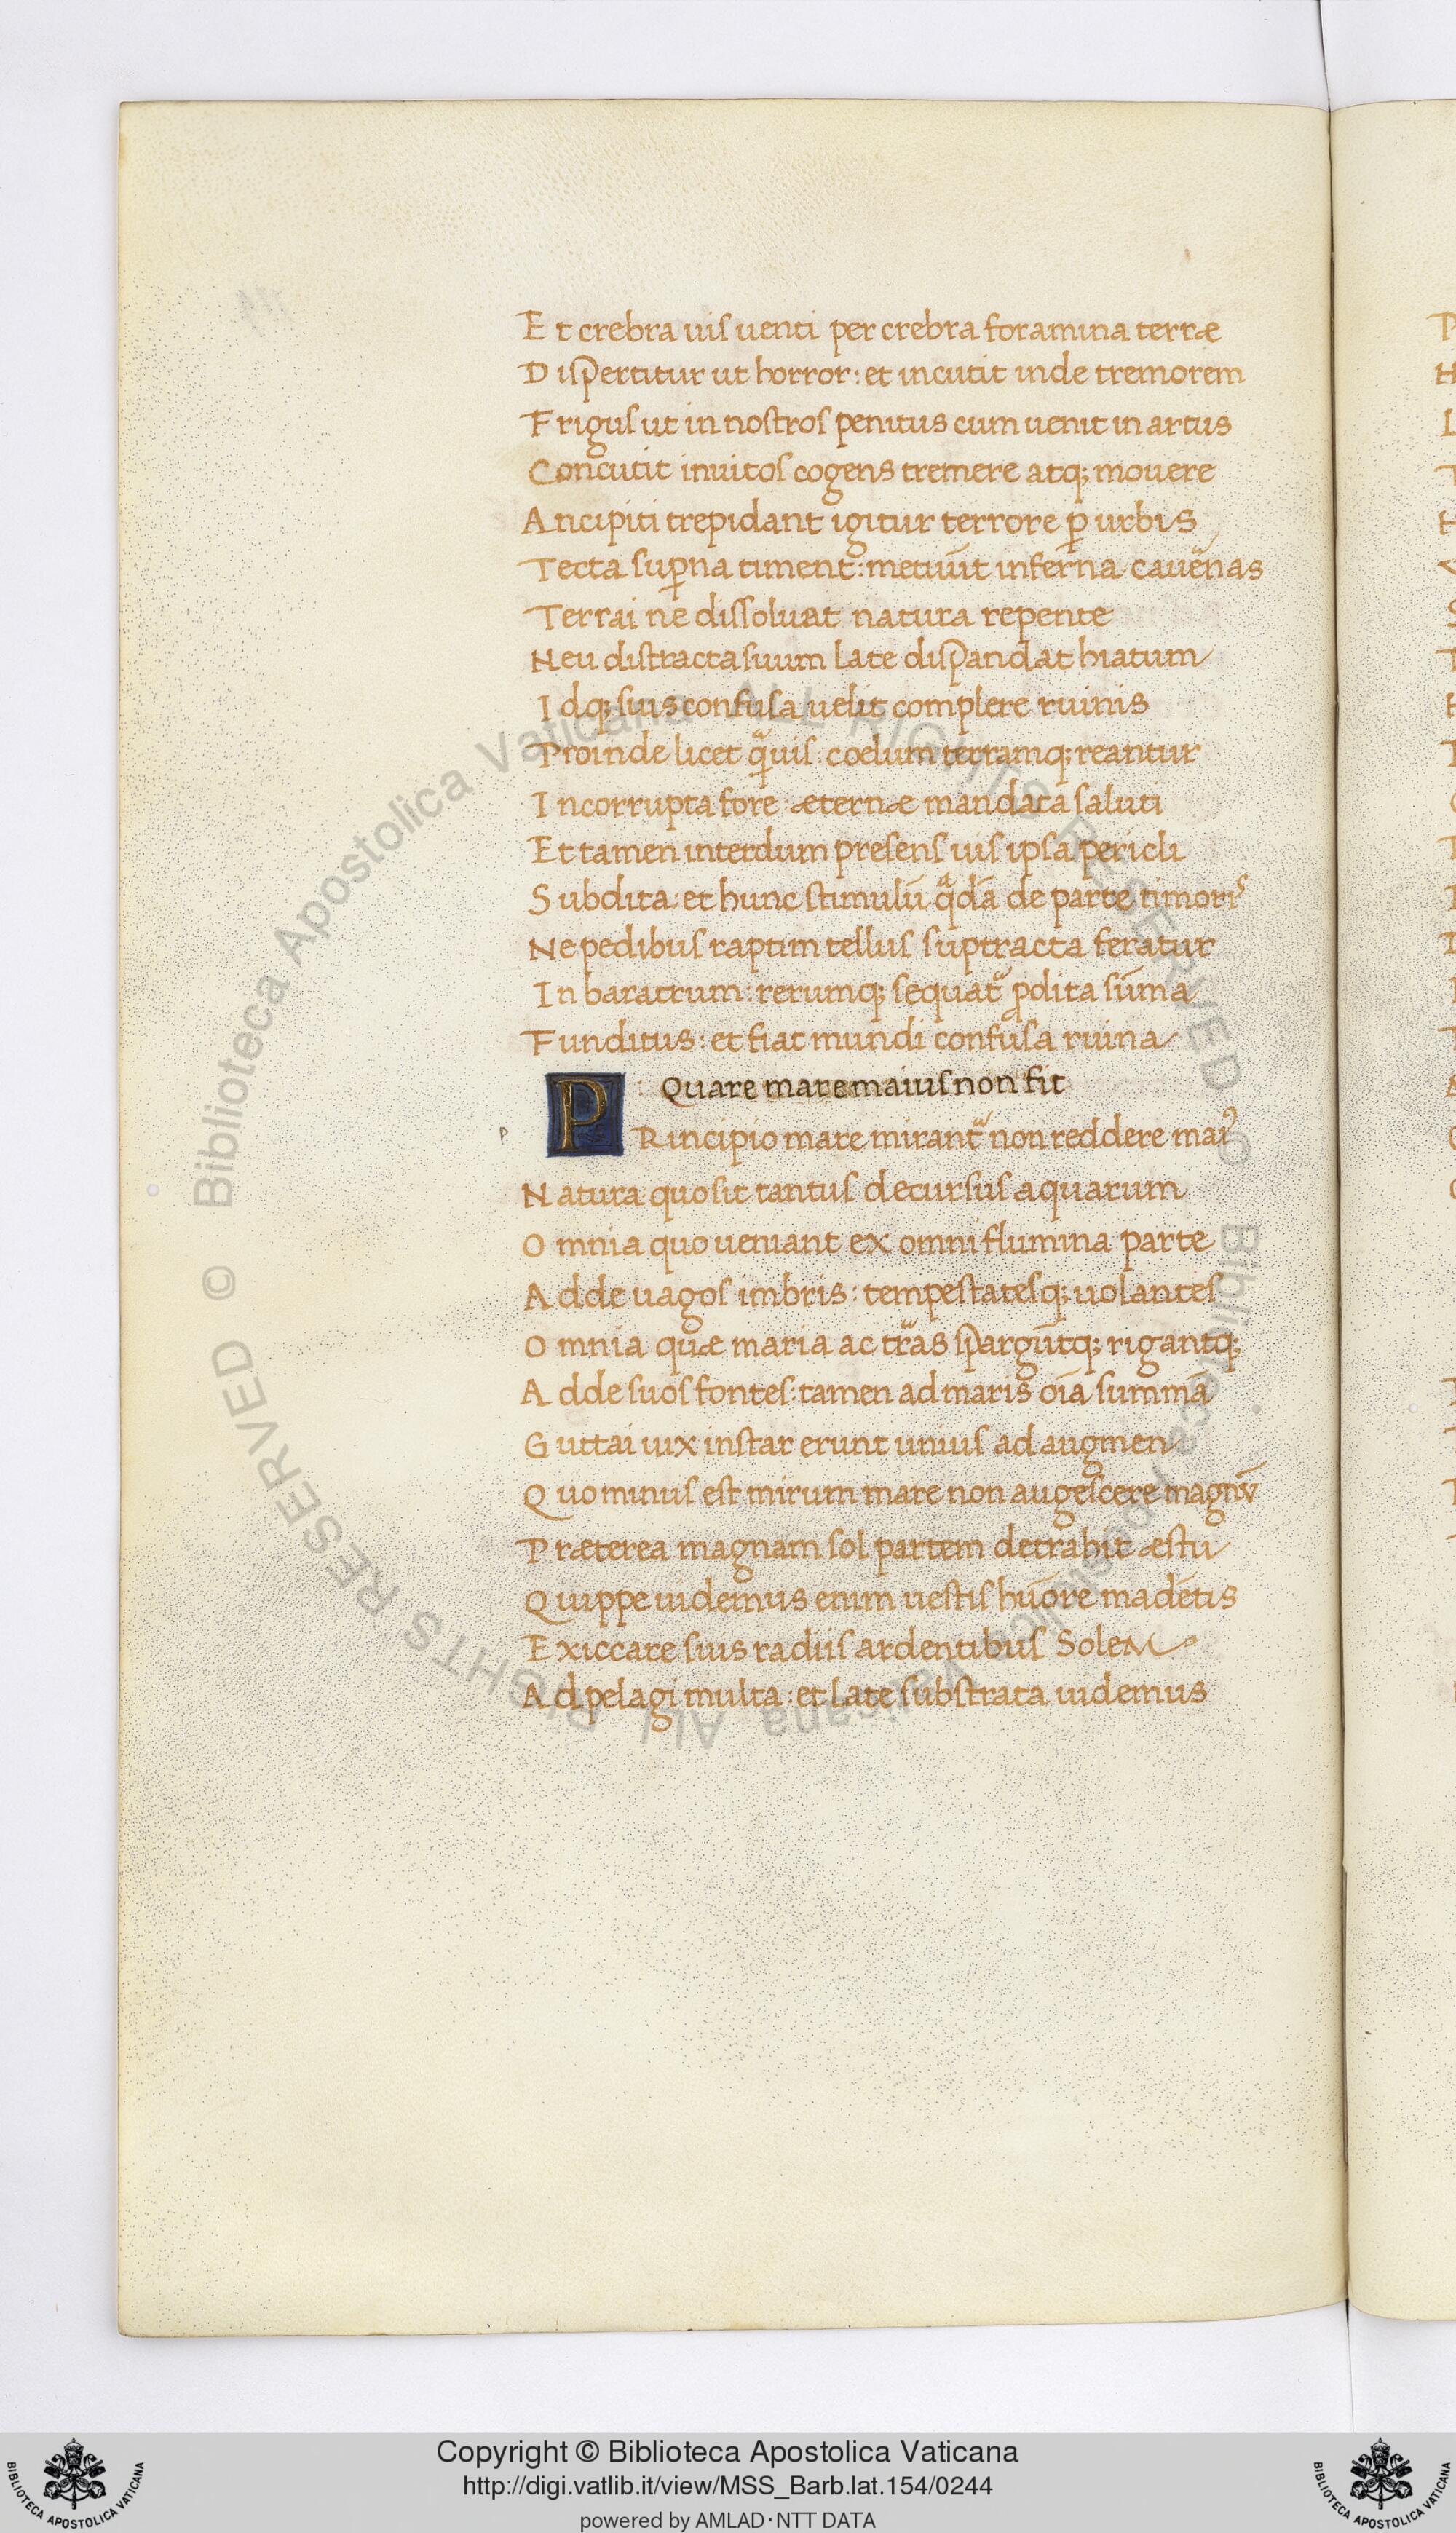 Et crebra uis uenti per crebra foramina terræ
Dispertitur ut horror: et incutit inde tremorem
Frigus ut in nostros penitus cum uenit in artus
Concutit inuitos cogens tremere atq; mouere
Ancipiti trepidant igitur terrore ꝑ urbis
Tecta suꝑna timent: metuūt inferna cauernas
Terrai ne dissoluat natura repente
Neu distracta suum late dispandat hiatum
Idq; suis confusa uelit complere ruinis
Proinde licet qᵃuis coelum terramq; reantur
Incorrupta fore æternæ mandata saluti
Et tamen interdum presens uis ipsa pericli
Subdita et hunc stimulū qᵃdā de parte timoris
Ne pedibus raptim tellus suptracta feratur
In baratrum: rerumq; sequat᷑ ꝓdita sūma
Funditus: et fiat mundi confusa ruina
Quare mare maius non fit
P
PRincipio mare mirant᷑ non reddere maiꝰ
Natura quo sit tantus decursus aquarum
Omnia quo ueniant ex omni flumina parte
Adde uagos imbris: tempestatesq; uolantes
Omnia quæ maria ac tr̄as spargūtq; rigantq;
Adde suos fontes: tamen ad maris oīa summā
Guttai uix instar erunt unius ad augmen
Quo minus est mirum mare non augescere magnū
Præterea magnam sol partem detrahit æstu
Quippe uidemus enim uestis hūore madētis
Exiccare suis radiis ardentibus Solem
Ad pelagi multa: et late substrata uidemus
© Biblioteca Apostolica Vaticana ALL RIGHTS RESERVED © Biblioteca Apostolica Vaticana ALL RIGHTS RESERVED
BIBLIOTECA APOSTOLICA VATICANA
Copyright © Biblioteca Apostolica Vaticana
http://digi.vatlib.it/view/MSS_Barb.lat.154/0244
powered by AMLAD·NTT DATA
BIBLIOTECA APOSTOLICA VATICANA